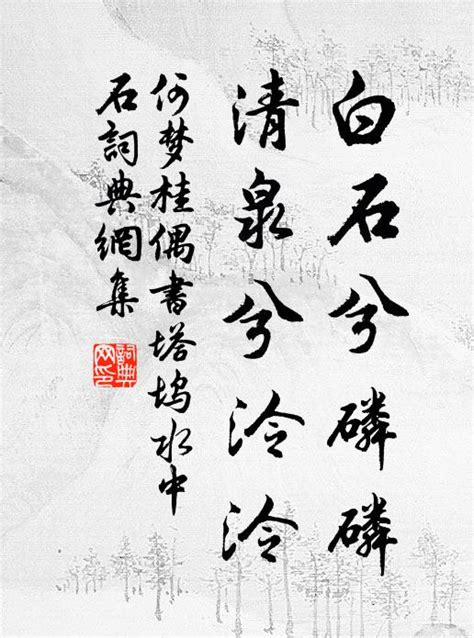 白石兮磷磷
清泉兮泠泠
何梦桂偶書塔坞水中
石詞典網集
詞典网印